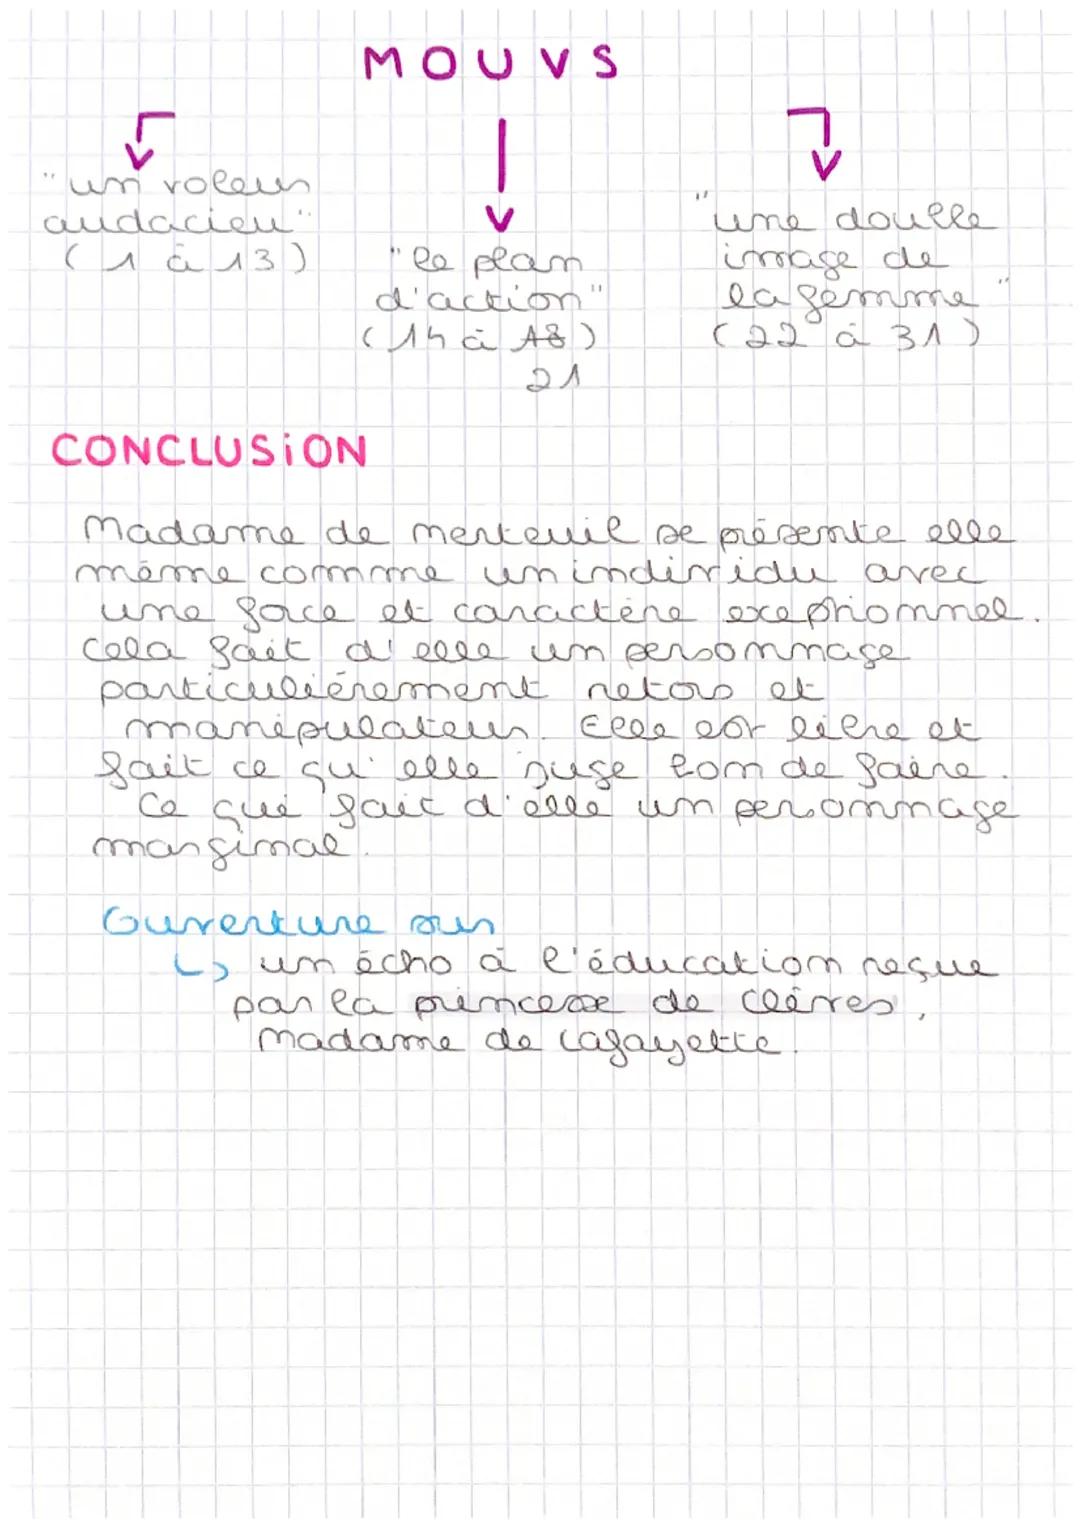 MOUVS
"un voleur
audacieu"
(1 à 13)
"le plan
d'action"
(14 à 18)
21
"une double
image de
la femme"
(22 à 31)
CONCLUSiON
Madame de merteuil se présente elle
même comme un individu avec
une force et caractère exeptionnel.
Cela fait d'elle un personnage
particulièrement retors et
manipulateur. Elle est libre et
fait ce qu'elle juge bon de faire.
Ce qui fait d'elle un personnage
marginal.
Ouverture sur
↳ un écho à l'éducation reçue
par la princesse de clèves,
Madame de Lafayette.